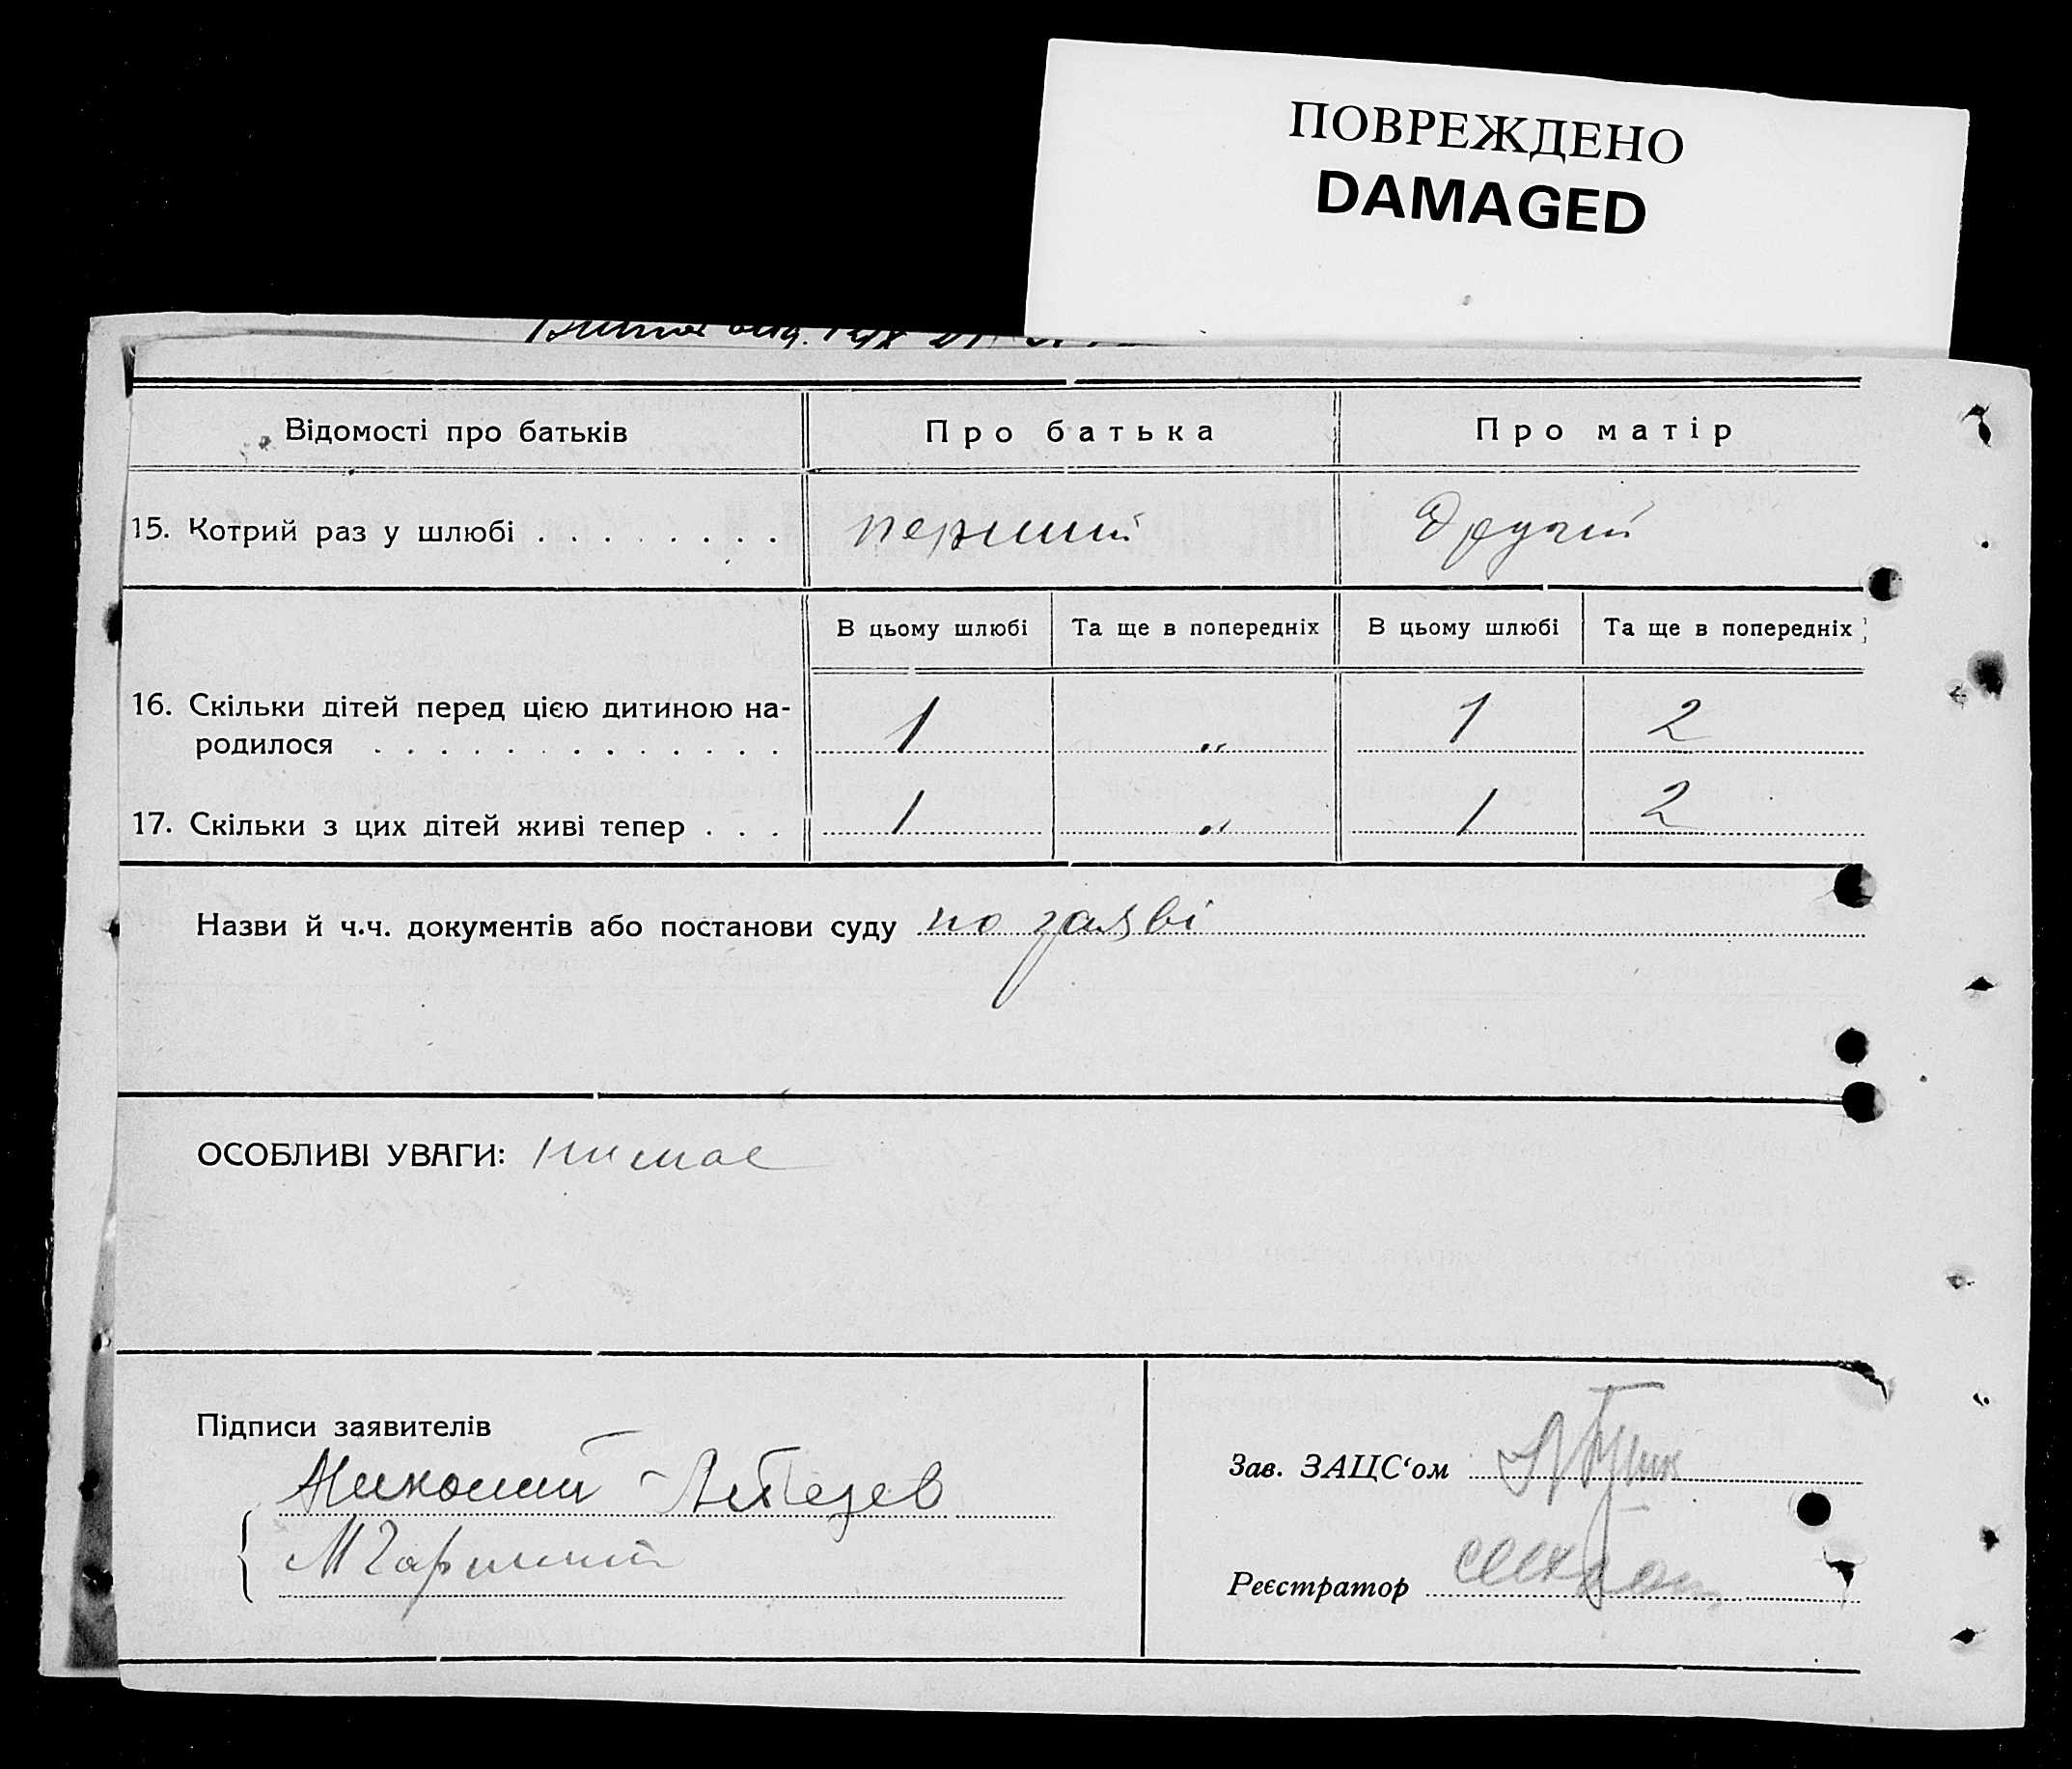 ПОВРЕЖДЕНО
DAMAGED
Відомості про батьків
Про батька
Про матір
15. Котрий раз у шлюбі . . . . . . . .
перший
другий
В цьому шлюбі
Та ще в попередніх
В цьому шлюбі
Та ще в попередніх
16. Скільки дітей перед цією дитиною на-
родилося . . . . . . . . . . . . .
1
"
1
2
17. Скільки з цих дітей живі тепер . . .
1
"
1
2
Назви й ч.ч. документів або постанови суду по заяві
ОСОБЛИВІ УВАГИ: нимае
Підписи заявителів
Зав. ЗАЦС‘ом
Лебедев
Реєстратор